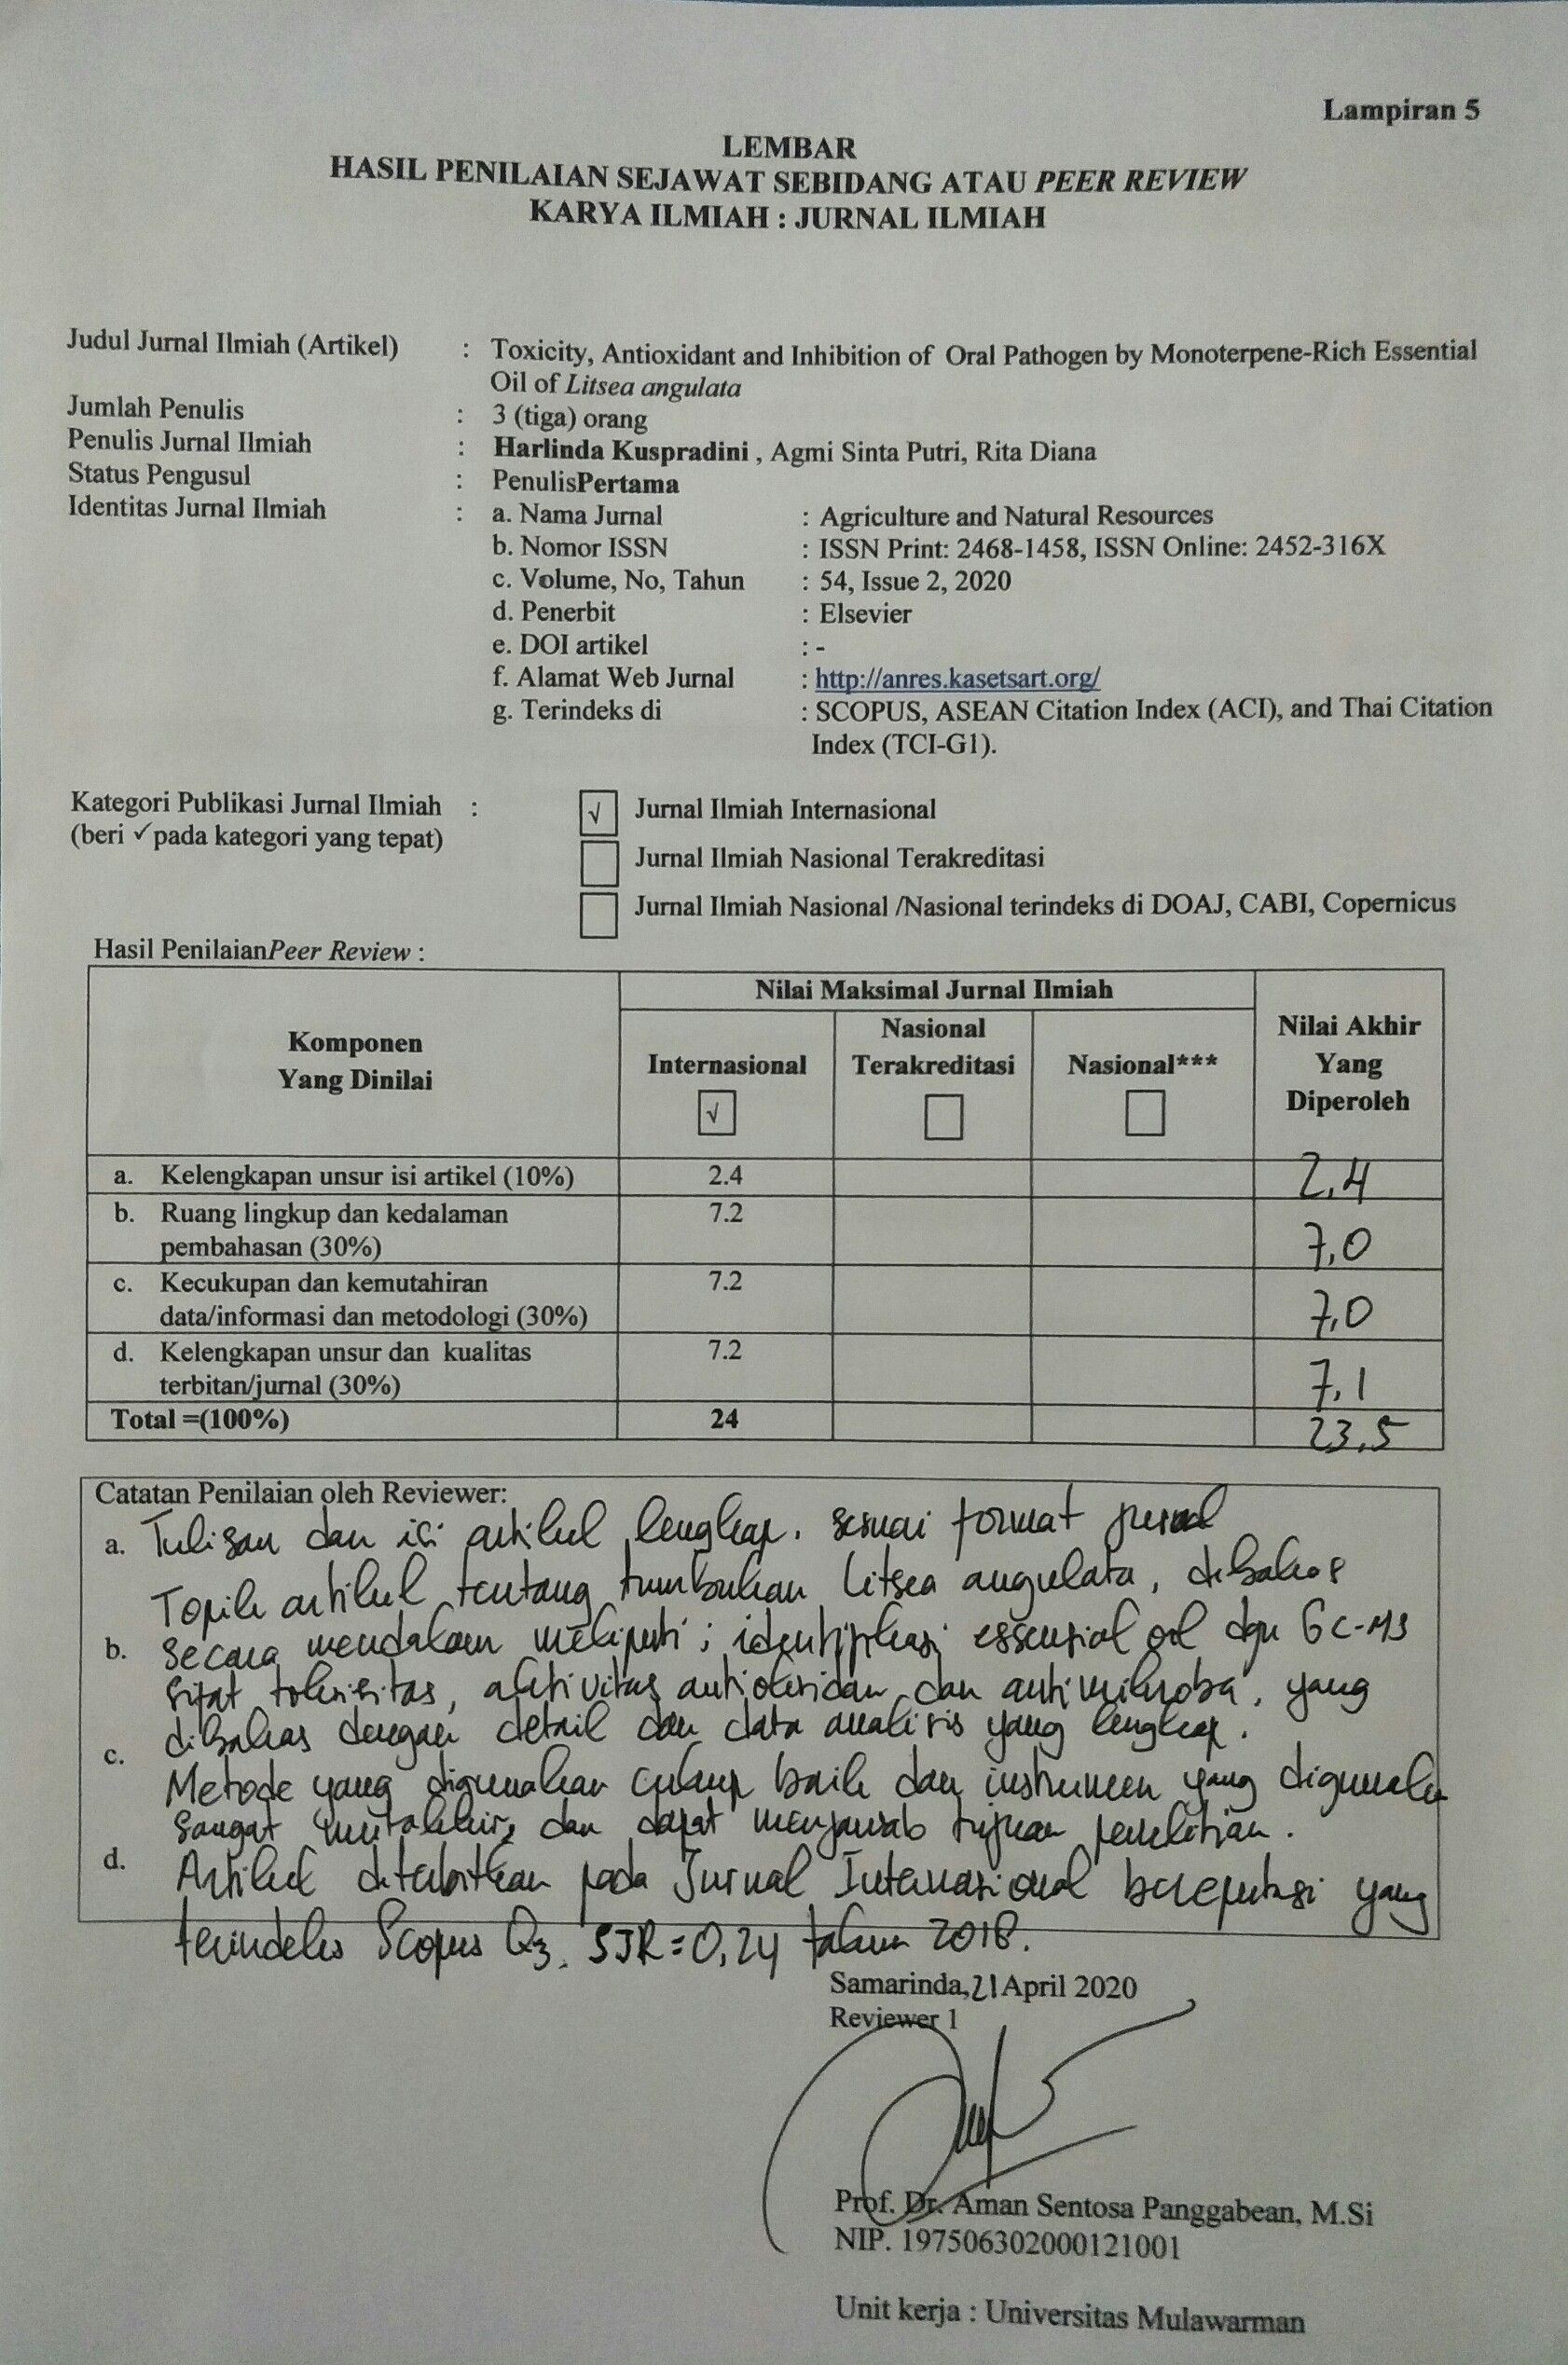 Lampiran 5
LEMBAR
HASIL PENILAIAN SEJAWAT SEBIDANG ATAU PEER REVIEW
KARYA ILMIAH : JURNAL ILMIAH
Judul Jurnal Ilmiah (Artikel) : Toxicity, Antioxidant and Inhibition of Oral Pathogen by Monoterpene-Rich Essential
Oil of Litsea angulata
Jumlah Penulis : 3 (tiga) orang
Penulis Jurnal Ilmiah : Harlinda Kuspradini , Agmi Sinta Putri, Rita Diana
Status Pengusul : PenulisPertama
Identitas Jurnal Ilmiah : a. Nama Jurnal : Agriculture and Natural Resources
b. Nomor ISSN : ISSN Print: 2468-1458, ISSN Online: 2452-316X
c. Volume, No, Tahun : 54, Issue 2, 2020
d. Penerbit : Elsevier
e. DOI artikel : -
f. Alamat Web Jurnal : http://anres.kasetsart.org/
g. Terindeks di : SCOPUS, ASEAN Citation Index (ACI), and Thai Citation
Index (TCI-G1).
Kategori Publikasi Jurnal Ilmiah : √ Jurnal Ilmiah Internasional
(beri ✓pada kategori yang tepat)
Jurnal Ilmiah Nasional Terakreditasi
Jurnal Ilmiah Nasional /Nasional terindeks di DOAJ, CABI, Copernicus
Hasil PenilaianPeer Review :
Komponen
Yang Dinilai
Nilai Maksimal Jurnal Ilmiah
Internasional
√
Nasional
Terakreditasi
Nasional***
Nilai Akhir
Yang
Diperoleh
a. Kelengkapan unsur isi artikel (10%) 2.4 2,4
b. Ruang lingkup dan kedalaman
pembahasan (30%) 7.2 7,0
c. Kecukupan dan kemutahiran
data/informasi dan metodologi (30%) 7.2 7,0
d. Kelengkapan unsur dan kualitas
terbitan/jurnal (30%) 7.2 7,1
Total =(100%) 24 23,5
Catatan Penilaian oleh Reviewer:
a. Tulisan dan isi artikel lengkap, sesuai format jurnal
Topik artikel tentang tumbuhan Litsea angulata, dibahas
b. secara mendalam meliputi ; identifikasi essensial oil dgn GC-MS
sifat toksisitas, aktivitas antioksidan dan antimikroba, yang
dibahas dengan detail dan data analisis yang lengkap.
c. Metode yang digunakan cukup baik dan instrumen yang digunakan
sangat mutakhir, dan dapat menjawab tujuan penelitian.
d. Artikel diterbitkan pada Jurnal Internasional bereputasi yang
terindeks Scopus Q3. SJR=0,24 tahun 2018.
Samarinda, 21 April 2020
Reviewer 1
Prof. Dr. Aman Sentosa Panggabean, M.Si
NIP. 197506302000121001
Unit kerja : Universitas Mulawarman